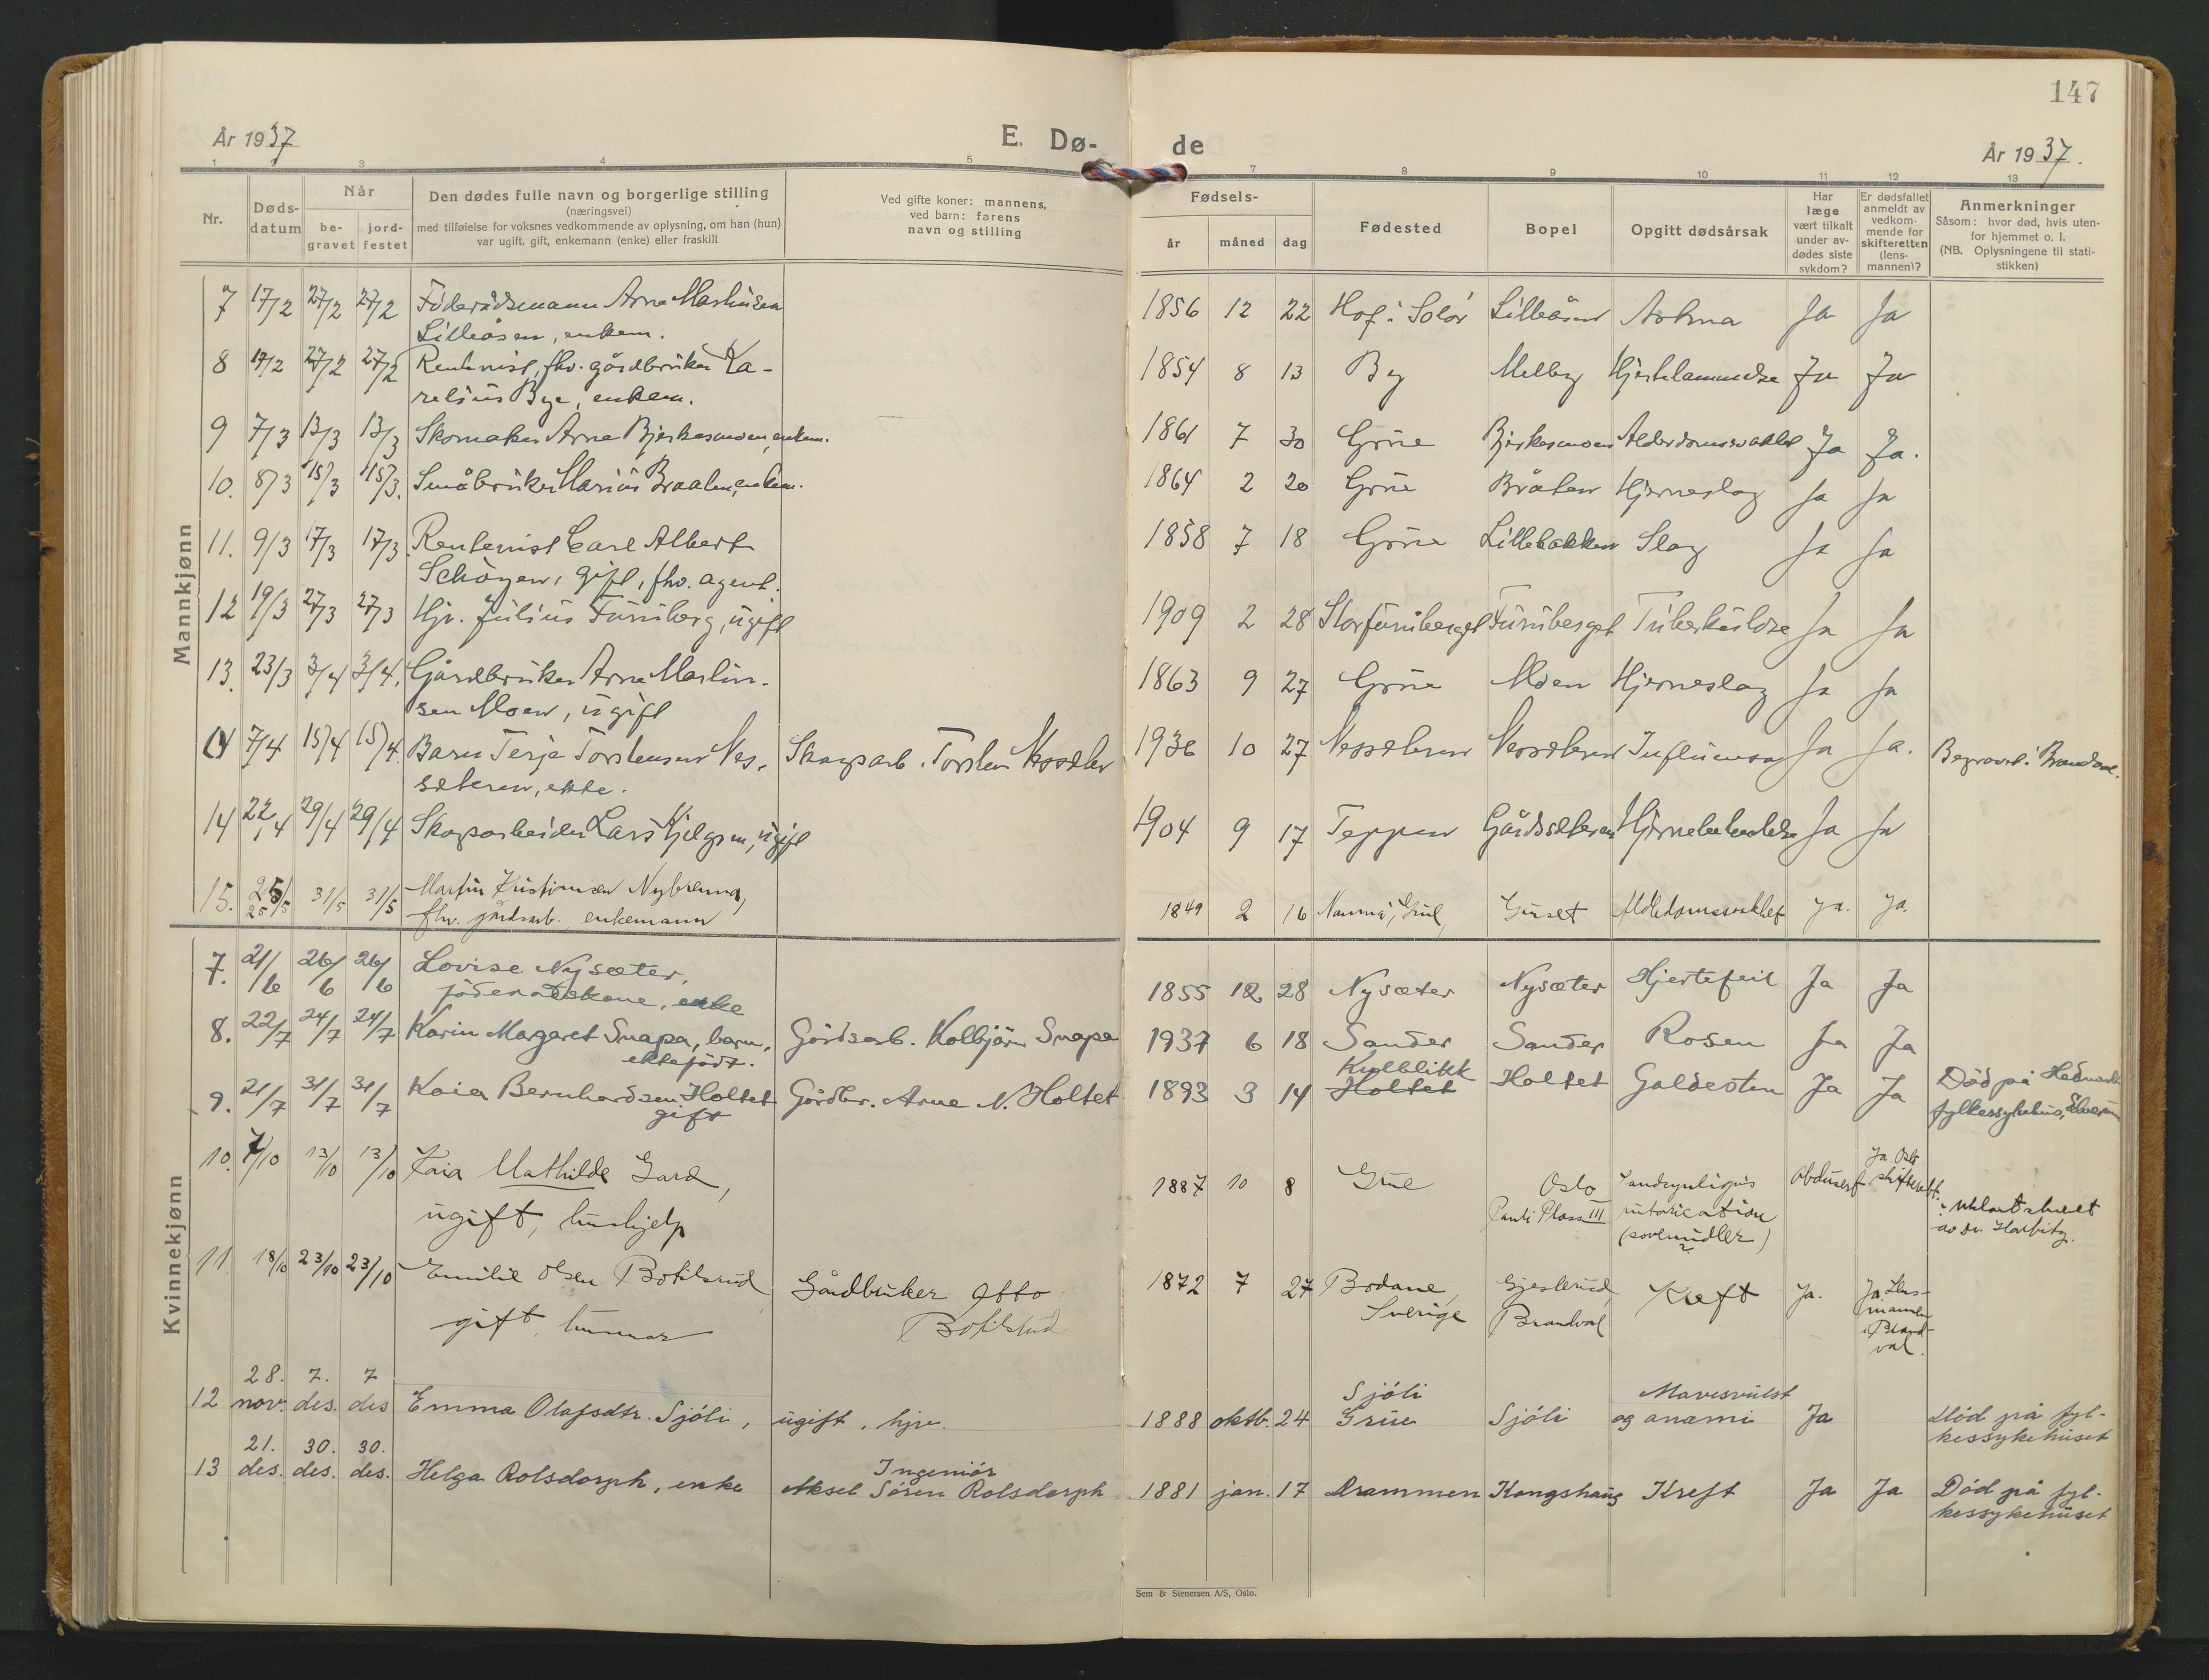 147
År 1937
E. Dø-
de
År 1937.
1 2 3 4 5 7 8 9 10 11 12 13
Nr.
Døds-
datum
Når
be-
gravet
jord-
festet
Den dødes fulle navn og borgerlige stilling
(næringsvei)
med tilføielse for voksnes vedkommende av oplysning, om han (hun)
var ugift, gift, enkemann (enke) eller fraskilt
Ved gifte koner: mannens,
ved barn: farens
navn og stilling
Fødsels-
år
måned
dag
Fødested
Bopel
Opgitt dødsårsak
Har
læge
vært tilkalt
under av-
dødes siste
sykdom?
Er dødsfallet
anmeldt av
vedkom-
mende for
skifteretten
(lens-
mannen)?
Anmerkninger
Såsom: hvor død, hvis uten-
for hjemmet o. l.
(NB. Oplysningene til stati-
stikken)
Mannkjønn
7 17/2 27/2 27/2 Föderådsmann Arne Mathisen 1856 12 22 Hof i Solør Lilleåsen Astma Ja Ja
Lilleåsen, enkem.
8 17/2 27/2 27/2 Rentenist, fhv. gårdbruker Ka- 1854 8 13 By Melby Hjertelammelse Ja Ja
relius Bye, enkem.
9 7/3 13/3 13/3 Skomaker Arne Bjerkesmoen, enkem. 1861 7 30 Grue Bjerkesmoen Alderdomssvakhet Ja Ja.
10. 8/3 15/3 15/3. Småbruker Marius Braaten, enkem. 1864 2 20 Grue Bråten Hjerneslag Ja Ja
11. 9/3 17/3 17/3. Rentenist Carl Albert 1858 7 18 Grue Lillebakken Slag Ja Ja
Schöyen, gift, fhv. agent.
12 19/3 27/3 27/3 Hjv. Julius Furuberg, ugift 1909 2 28 Storfuruberget Furuberget Tuberkulose Ja Ja
13. 23/3 3/4 3/4. Gårdbruker Arne Martin- 1863 9 27 Grue Moen Hjerneslag Ja Ja
sen Moen, ugift
7/4 15/4 15/4. Barn Terje Torstensen Nes- Skogsarb. Torsten 1936 10 27 Influensa Ja Ja. Begravet i Brandval.
seteren, ekte.
14 22/4 29/4 29/4 Skogsarbeider Lars Kjelgren, ugift 1904 9 17 Teppen Gårdsæteren Ja Ja
15. 25/5 31/5 31/5 Martin Kristiansen Nybrenna, 1849 2 16 Grue Alderdomssvakhet Ja. Ja.
fhv. jordarb. enkemann
Kvinnekjønn
7. 21/6 26/6 26/6 Lovise Nysæter, 1855 12 28 Nysæter Nysæter Hjertefeil Ja Ja
föderådskone, enke
8. 22/7 24/7 24/7 Karin Margaret Snapa, barn, Gårdsarb. Kolbjörn Snapa 1937 6 18 Sander Sander Rosen Ja Ja
ektefödt.
Kvelblikk
9. 21/7 31/7 31/7 Kaia Bernhardsen Holtet Gårdbr. Arne N. Holtet 1893 3 14 Holtet Holtet Galdesten Ja Ja Död på Hedmark
gift fylkessykehus, Elverum
10. 7/10 13/10 13/10 Kaia Mathilde Gard, 1887 10 8 Grue Oslo Sandsynligvis obdusert Ja Oslo skifterett.
ugift, hushjelp Pauli Plass III intoxication av dr. Harbitz.
(sovemidler)
11 18/10 23/10 23/10 Emilie Olsen Botilsrud Gårdbruker Otto 1872 7 27 Bodane, Gjesterud, Kreft Ja. Ja. Lens-
gift, husmor Botilsrud Sverige Brandval mannen
i Brand-
val.
28. 7. 7 Sjöli Mavesvulst
12 nov. des. des Emma Olafsdtr. Sjöli, ugift, hjv. 1888 oktb. 24 Grue Sjöli og anæmi Ja Död på fyl-
kessykehuset
21. 30. 30. Ingeniör
13 des. des. des. Helga Rolsdorph, enke Aksel Sören Rolsdorph 1881 jan. 17 Drammen Kongshaug Kreft Ja Ja Död på fyl-
kessykehuset
Sem & Stenersen A/S, Oslo.